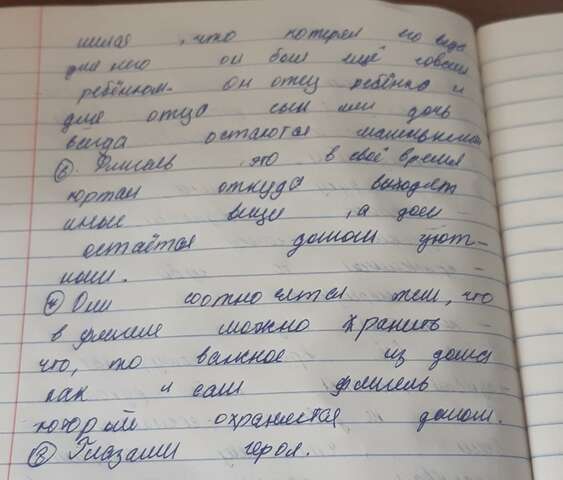 что потерял его ведь
для него он был ещё совсем
ребёнком. он отец ребёнка и
для отца сын или дочь
всегда остаются маленькими
③. Флигель это в своё время
портал откуда выходят
иные вещи, а дом
остаётся домом уют-
ным.
④ Они соотносятся тем, что
в флигеле можно хранить
что, то важное из дома
как и сам флигель
который охраняется домом.
Глазами героя.